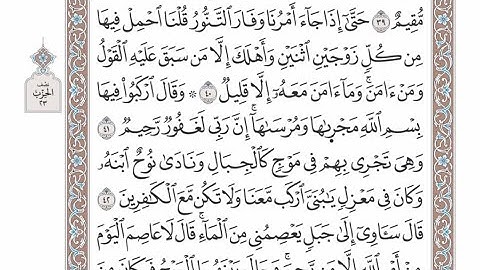 مُّقِيمٌ ۝٣٩ حَتَّىٰٓ إِذَا جَآءَ أَمْرُنَا وَفَارَ ٱلتَّنُّورُ قُلْنَا ٱحْمِلْ فِيهَا
مِن كُلٍّ زَوْجَيْنِ ٱثْنَيْنِ وَأَهْلَكَ إِلَّا مَن سَبَقَ عَلَيْهِ ٱلْقَوْلُ
وَمَنْ ءَامَنَۚ وَمَآ ءَامَنَ مَعَهُۥٓ إِلَّا قَلِيلٌ ۝٤٠ ۞ وَقَالَ ٱرْكَبُوا۟ فِيهَا
بِسْمِ ٱللَّهِ مَجْر۪ىٰهَا وَمُرْسَىٰهَآۚ إِنَّ رَبِّى لَغَفُورٌ رَّحِيمٌ ۝٤١
وَهِىَ تَجْرِى بِهِمْ فِى مَوْجٍ كَٱلْجِبَالِ وَنَادَىٰ نُوحٌ ٱبْنَهُۥ
وَكَانَ فِى مَعْزِلٍ يَـٰبُنَىَّ ٱرْكَب مَّعَنَا وَلَا تَكُن مَّعَ ٱلْكَـٰفِرِينَ ۝٤٢
قَالَ سَـَٔاوِىٓ إِلَىٰ جَبَلٍ يَعْصِمُنِى مِنَ ٱلْمَآءِۚ قَالَ لَا عَاصِمَ ٱلْيَوْمَ
مِنْ أَمْرِ ٱللَّهِ إِلَّا مَن رَّحِمَۚ وَحَالَ بَيْنَهُمَا ٱلْمَوْجُ فَكَانَ مِنَ
نصف
الحزب
٢٣